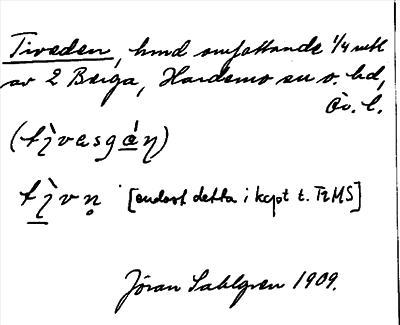 Tiveden, hmd omfattande 1/4 mtl
av 2 Bæiga, Hardemo sn o. hd,
Ör. l.
(tı̀vɑsgǻŋ)
tı̀vn̥ [endast detta i kapt t. TRMS]
Jöran Sahlgren 1909.